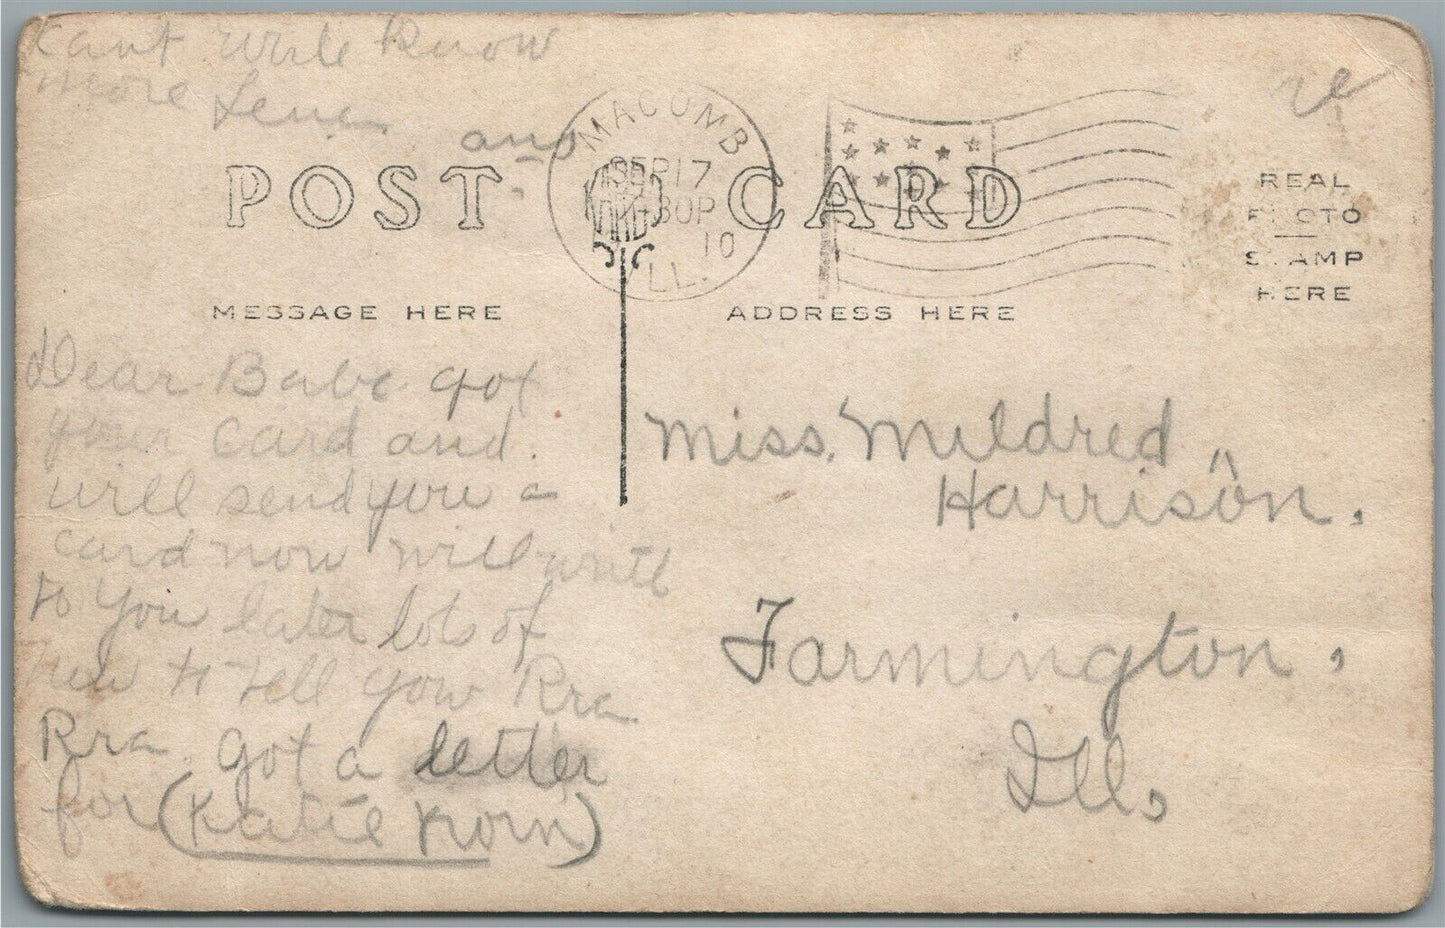 Cant write Know
more Lena
ans
MACOMB
SEP 17
30P
10
ILL.
POST CARD
REAL
PHOTO
STAMP
HERE
MESSAGE HERE
ADDRESS HERE
Dear Babe got
your card and.
will send you a
card now will write
to you later lots of
new to tell you Rra
Rra. got a letter
for (Katie Korn)
Miss. Mildred
Harrison.
Farmington,
Ill,